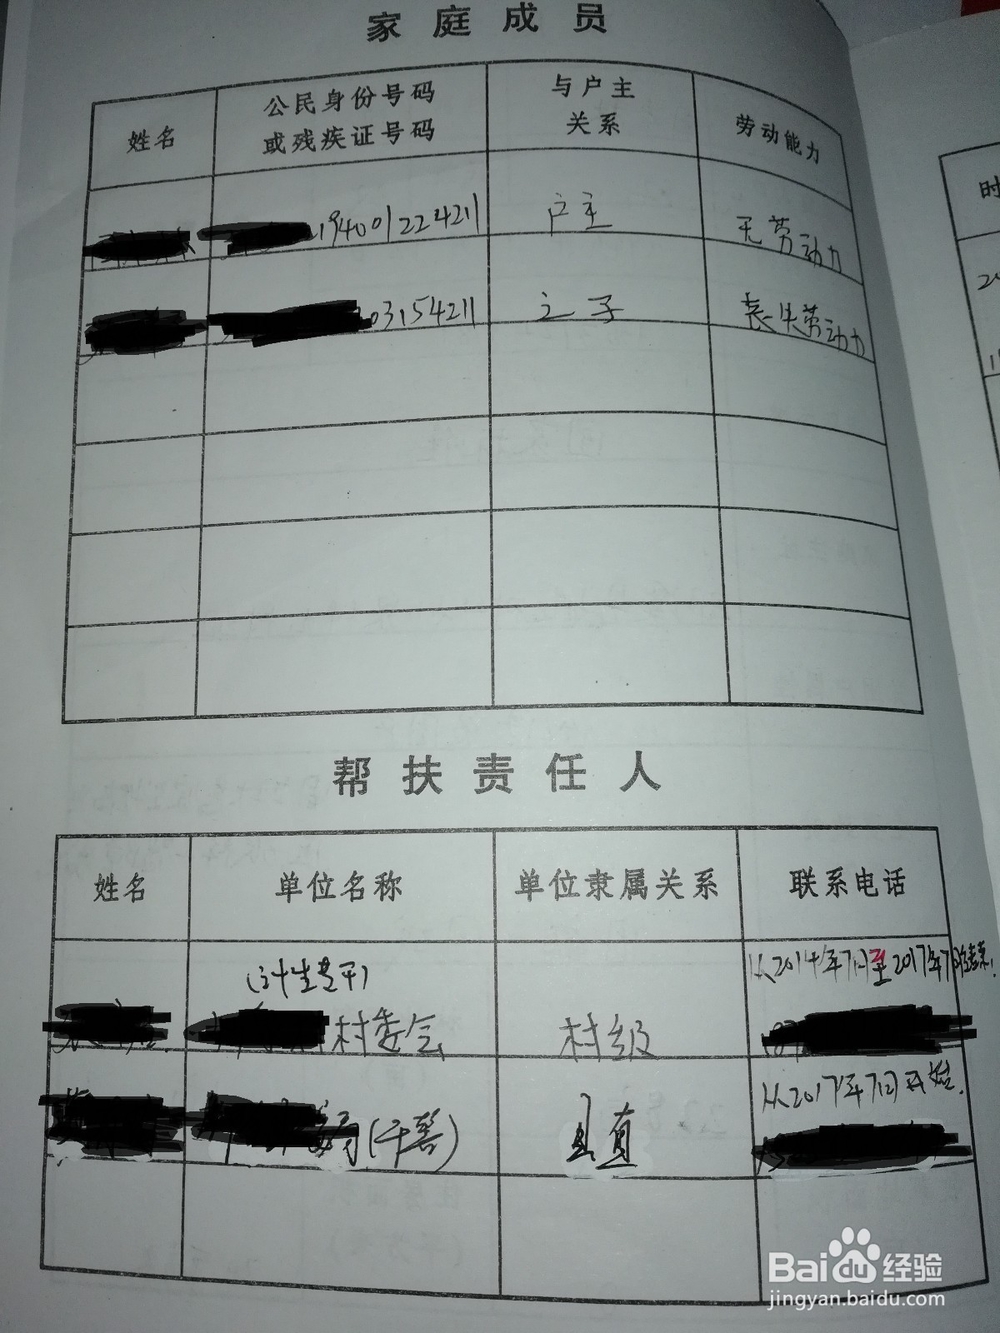 家庭成员
姓名 公民身份号码 或残疾证号码 与户主 关系 劳动能力
194001224211 户主 无劳动力
03154211 之子 丧失劳动力
帮扶责任人
姓名 单位名称 单位隶属关系 联系电话
从2014年7月至2017年7月结束.
(计生专干)
村委会 村级
从2017年7月开始.
(干善) 县直
时
Baidu经验
jingyan.baidu.com